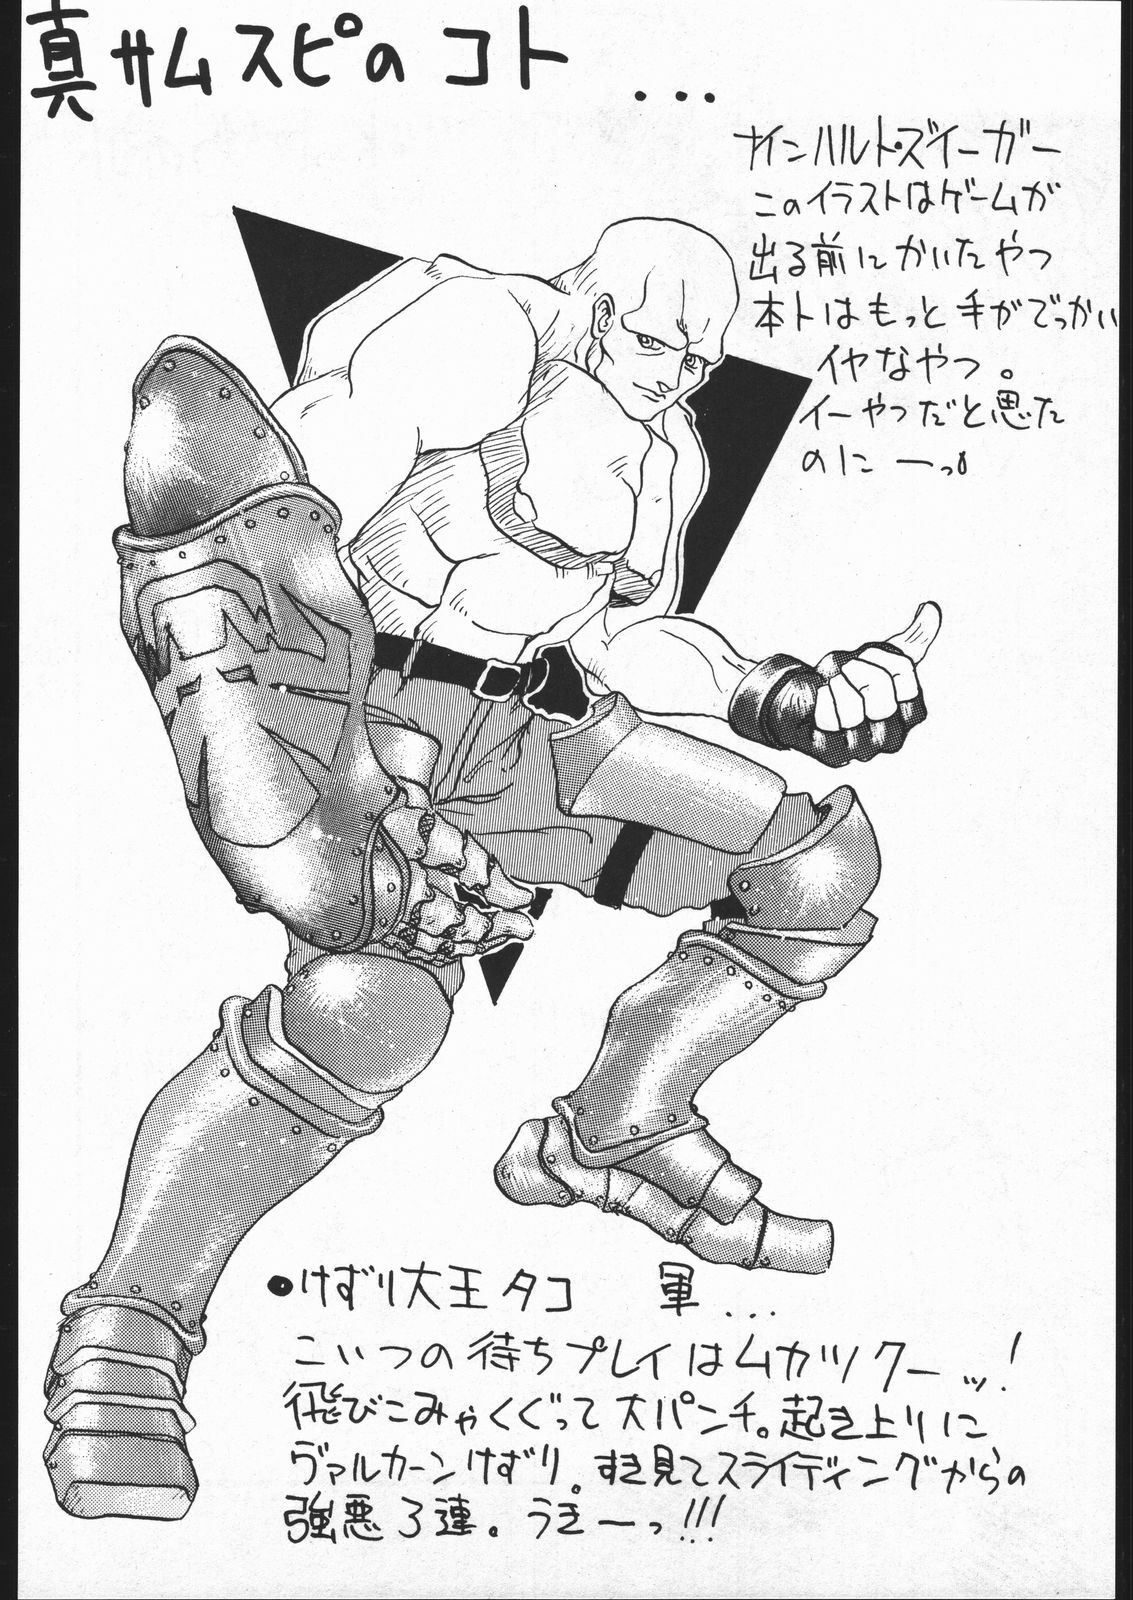 真サムスピのコト...
ナインハルト・ズィーガー
このイラストはゲームが
出る前にかいたやつ
本トはもっと手がでっかい
イヤなやつ。
イーやつだと思た
のにーっ
●けずり大王タコ 軍...
こいつの待ちプレイはムカツクーッ!
飛びこみゃくぐって大パンチ。起き上りに
ヴァルカーンけずり。すき見てスライディングからの
強悪3連。うきーっ!!!